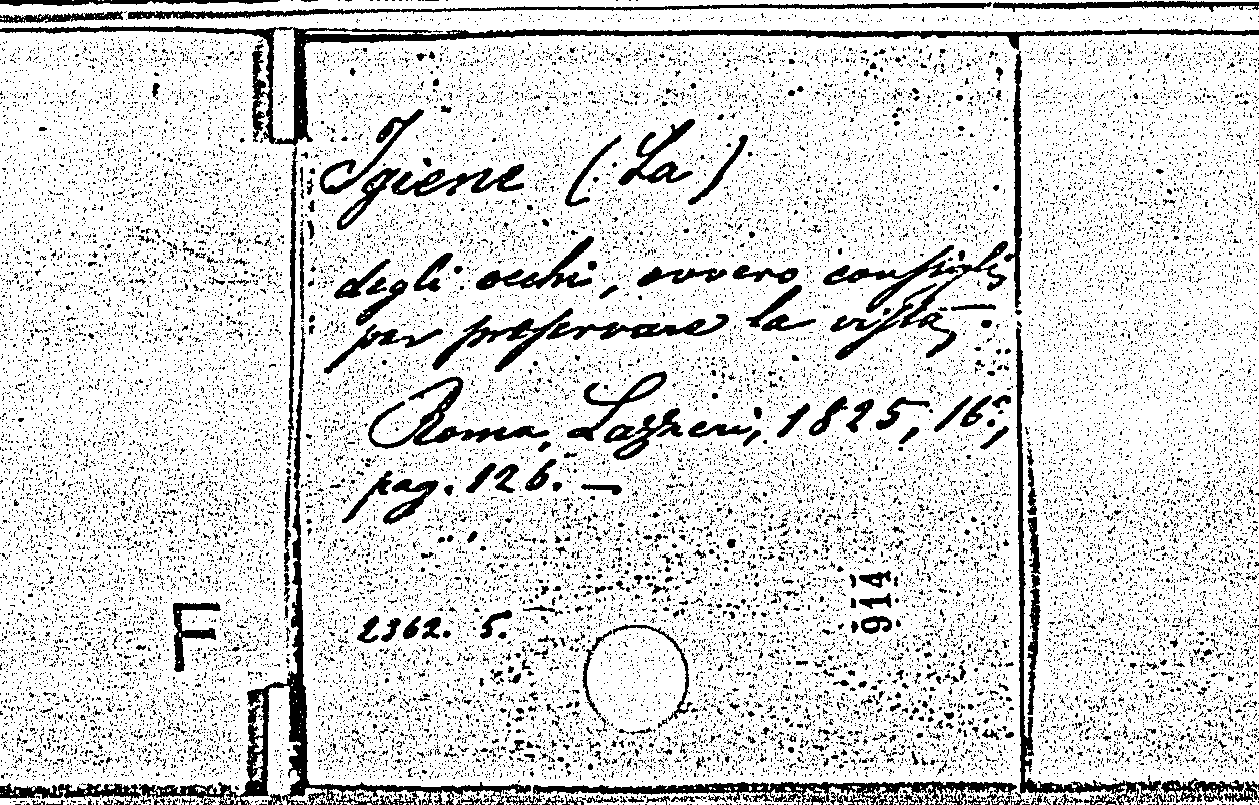 Igiene (La)
degli occhi, ovvero consigli
per preservare la vista,
Roma, Lazzeri, 1825, 16°,
pag. 126. —
2362. 5.
914
F